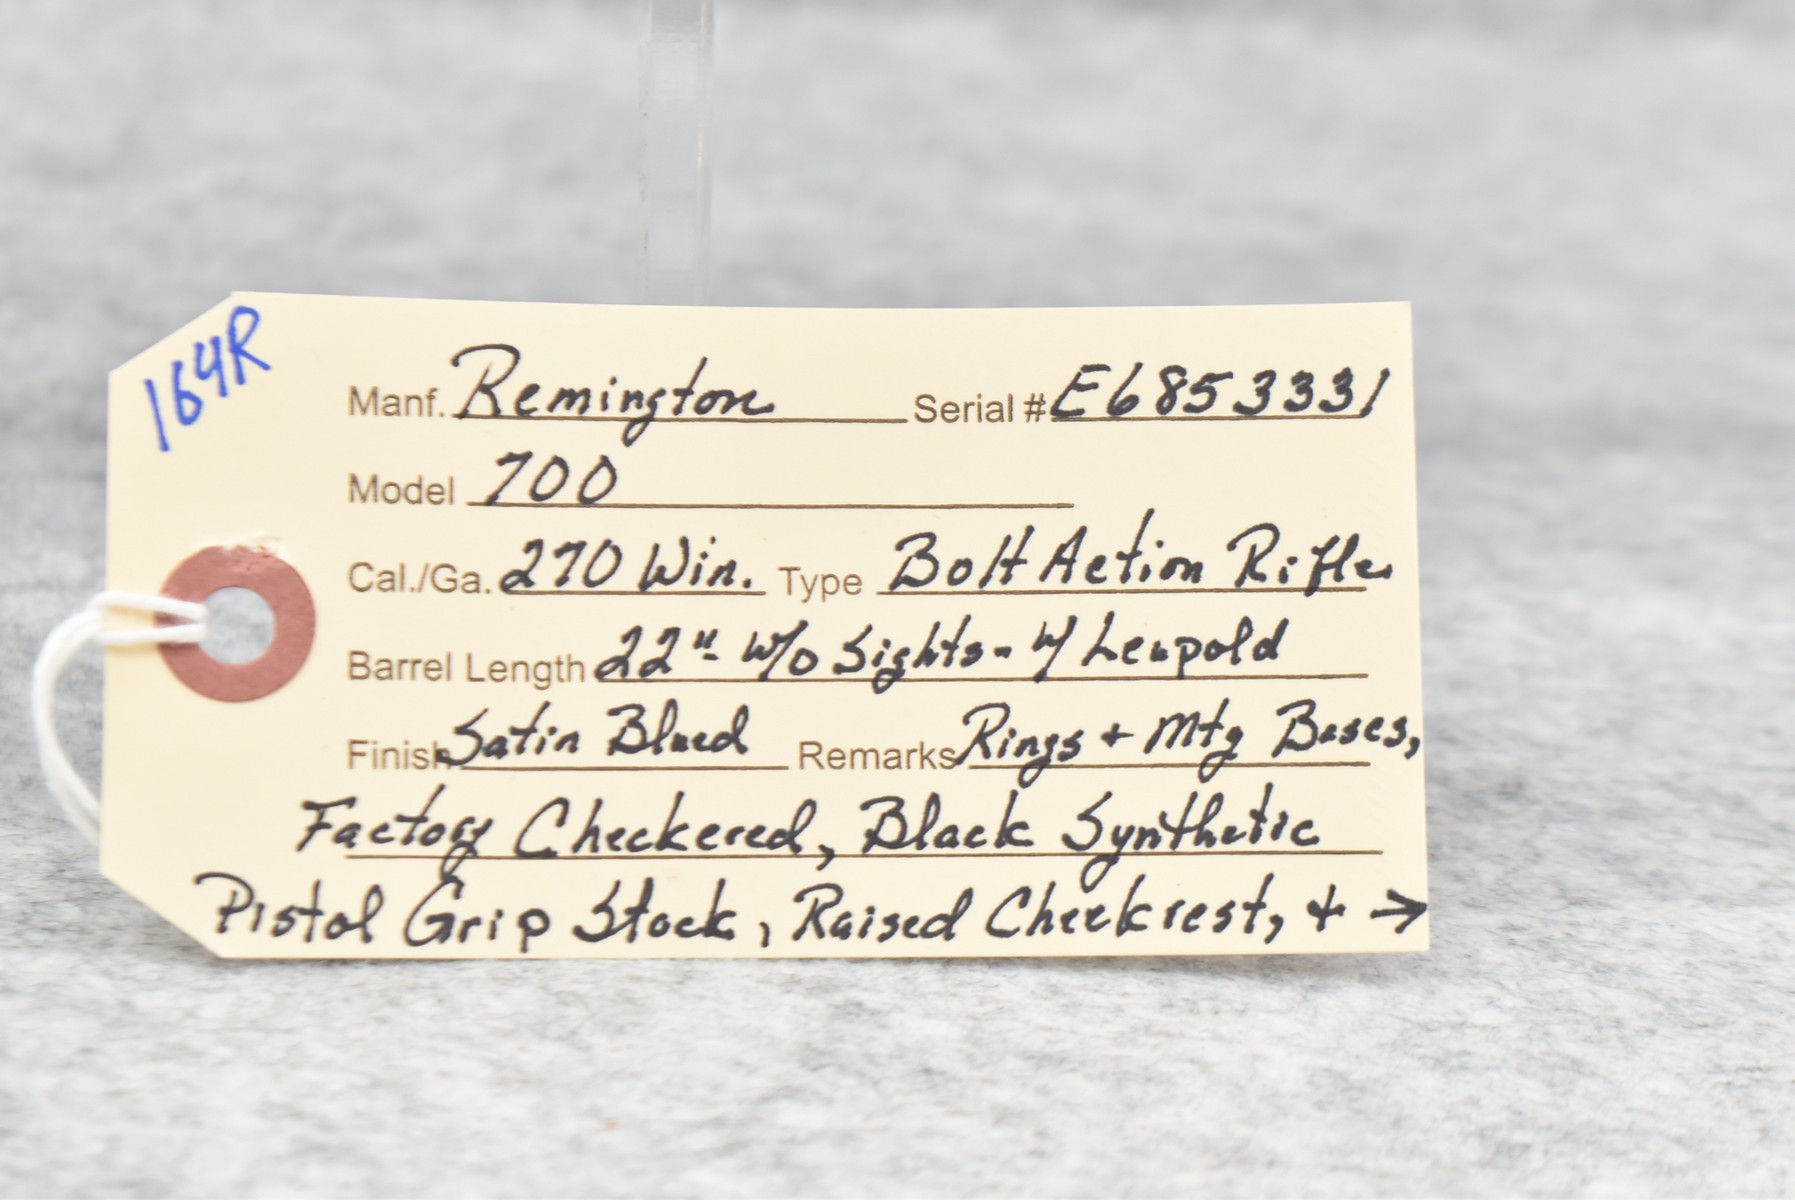 164R
Manf. Remington Serial # E6853331
Model 700
Cal./Ga. 270 Win. Type Bolt Action Rifle
Barrel Length 22" w/o Sights - w/ Leupold
Finish Satin Blued Remarks Rings + Mtg Bases,
Factory Checkered, Black Synthetic
Pistol Grip Stock, Raised Cheekrest, + →